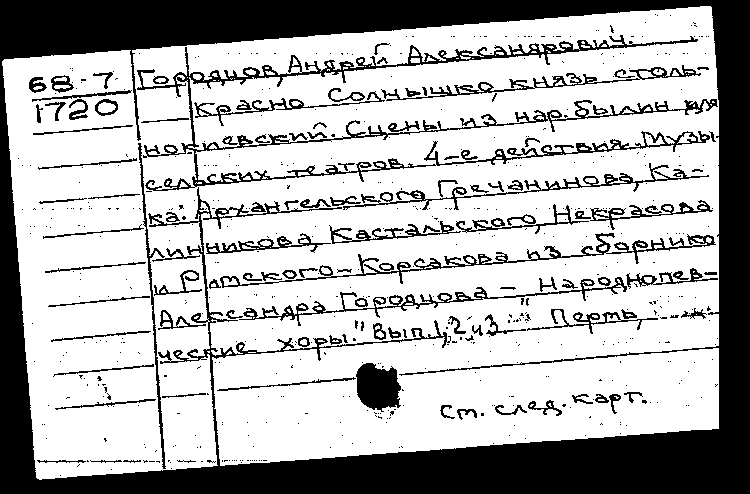 68-7
1720
Городцов, Андрей Александрович.
Красно Солнышко, князь столь-
нокиевский. Сцены из нар. былин для
сельских театров. 4-е действия. Музы-
ка: Архангельского, Гречанинова, Ка-
линникова, Кастальского, Некрасова
и Римского-Корсакова из сборников
Александра Городцова - Народнопев-
ческие хоры." Вып. 1, 2 и 3." Пермь,
См. след. карт.